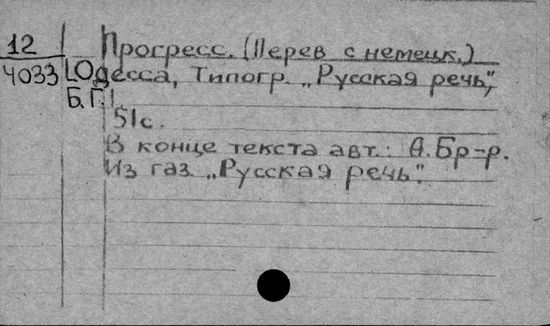 12 Прогресс. (Перев с немецк.)
4033 Одесса, Типогр. „Русская речь",
Б.Г.
51с.
В конце текста авт.: А.Бр-р.
Из газ. „Русская речь".